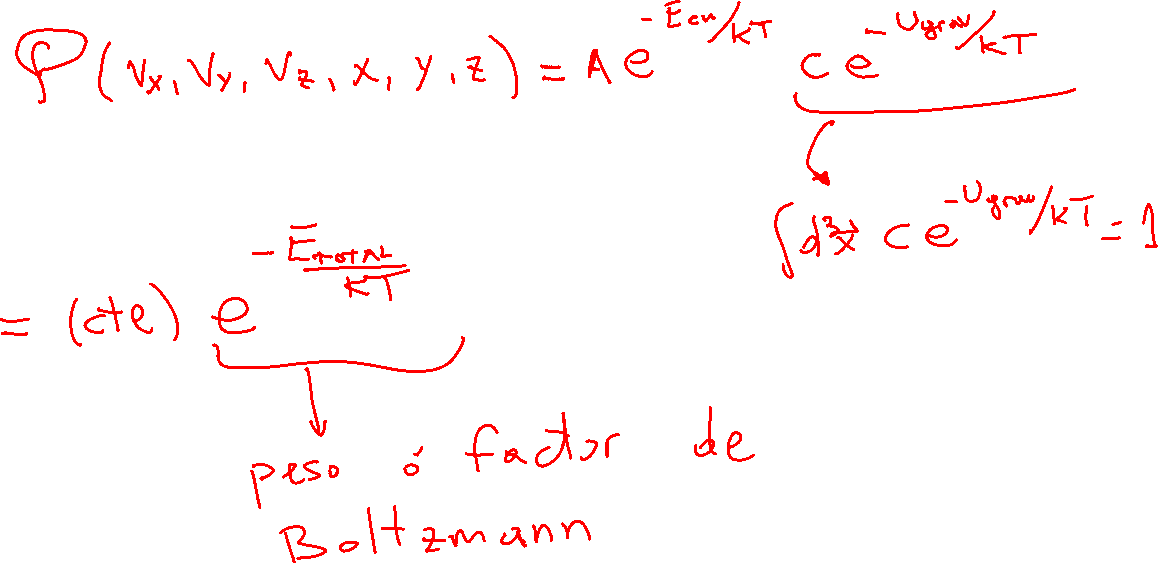 P(vx, vy, vz, x, y, z) = A e^{-Ecin/kT} c e^{-Ugrav/kT}
∫d³x⃗ c e^{-Ugrav/kT} = 1
= (cte) e^{-ETOTAL/kT}
peso ó factor de
Boltzmann